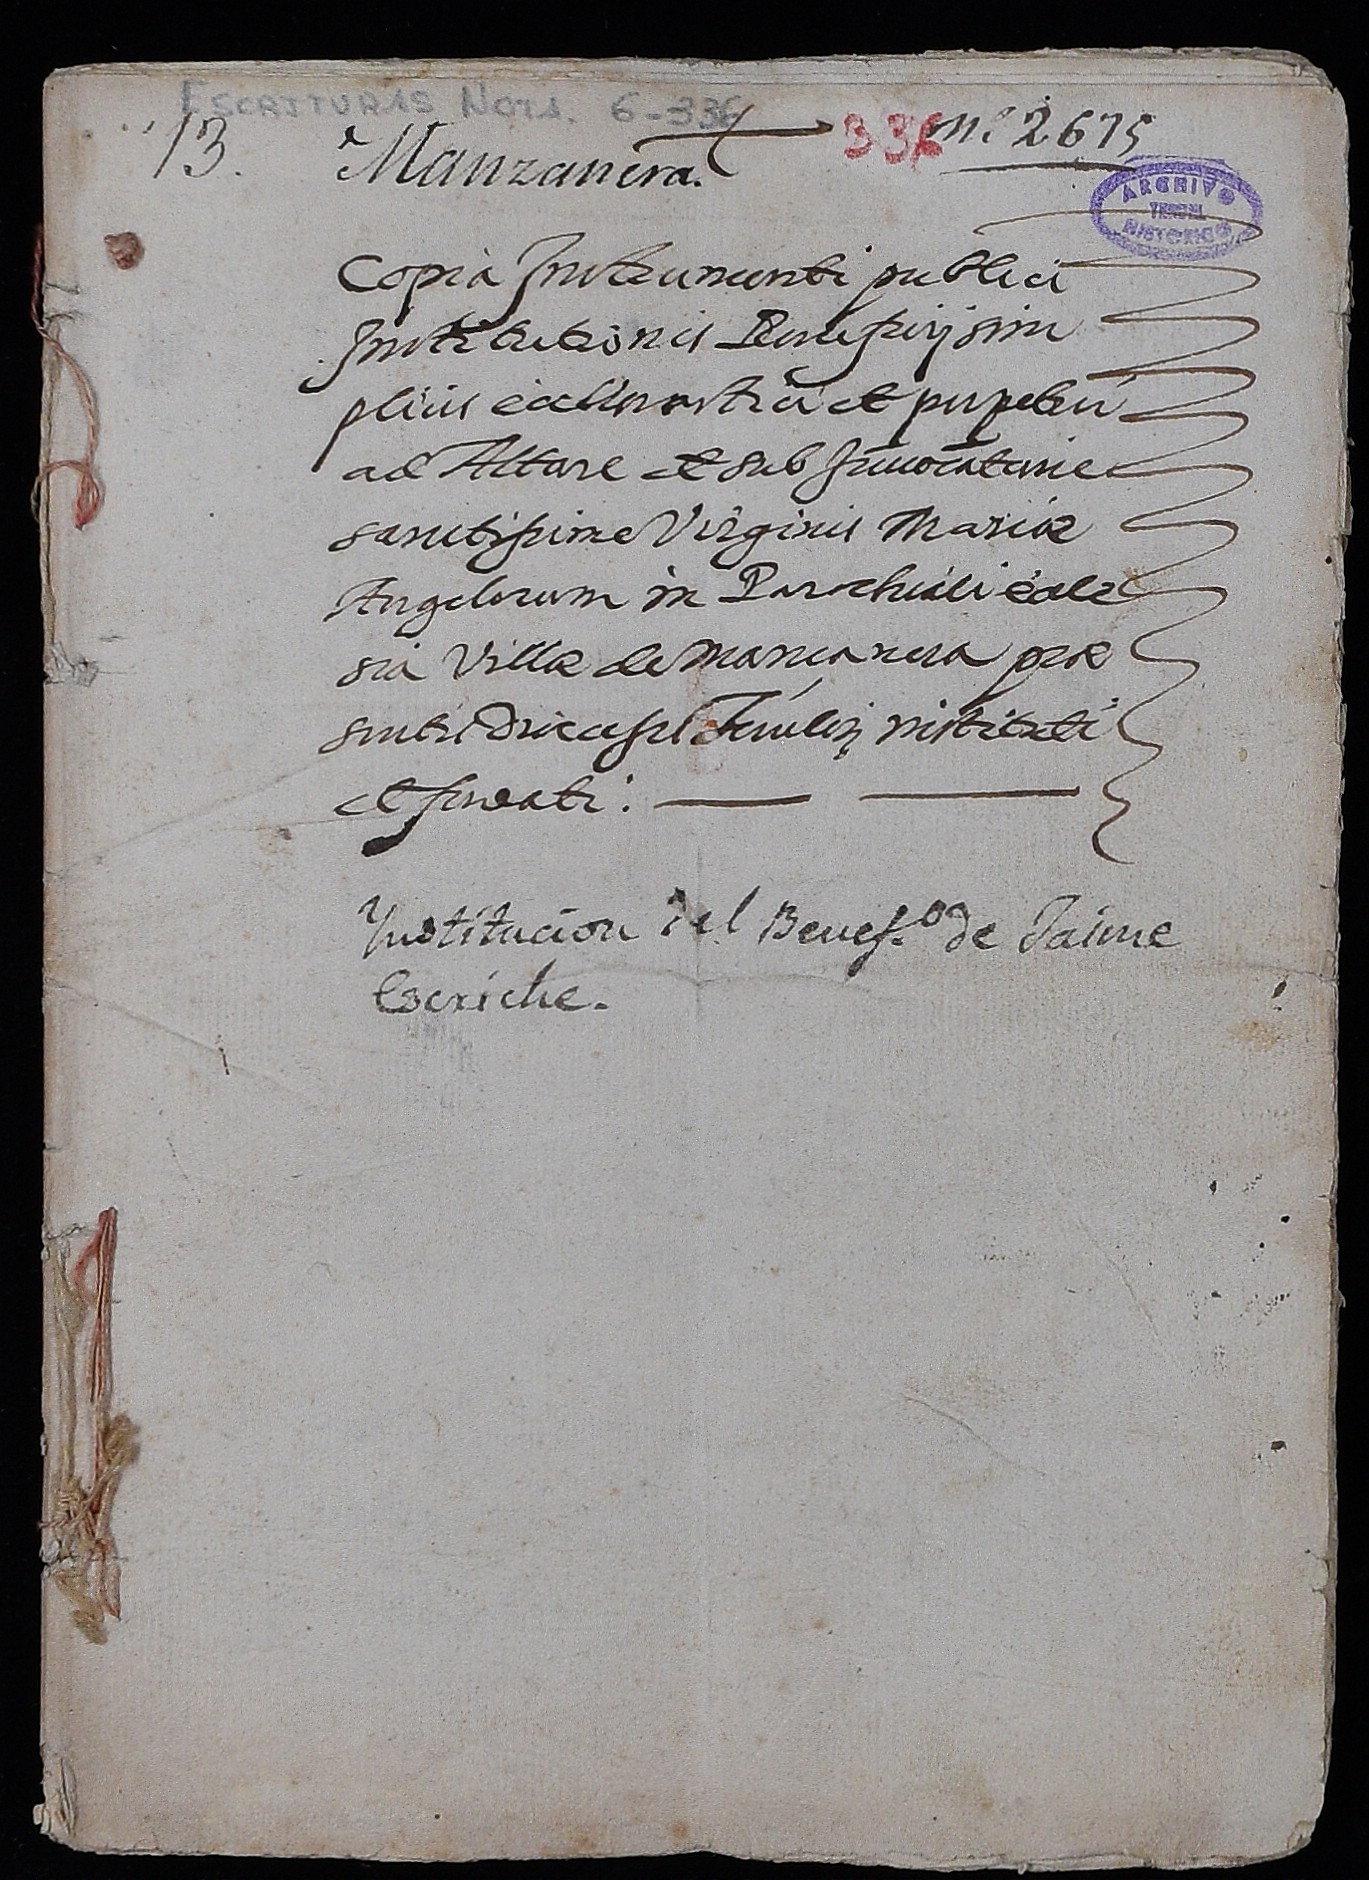 ESCRITURAS NOTS. 6-336
13. Manzanera. 336 n.º 2675
ARCHIVO
TERUEL
HISTORICO
Copia Instrumenti publici
Institutionis Beneficij sim
plicis ecclesiastici et perpetui
ad Altare et sub Invocatione
sanctissime Virginis Mariæ
Angelorum in Parochiali eccle
sia Villæ de Mançanera præ
sentis Diocesis Turolij instituti
et fundati.
Institucion del Benef.º de Jaime
Escriche.